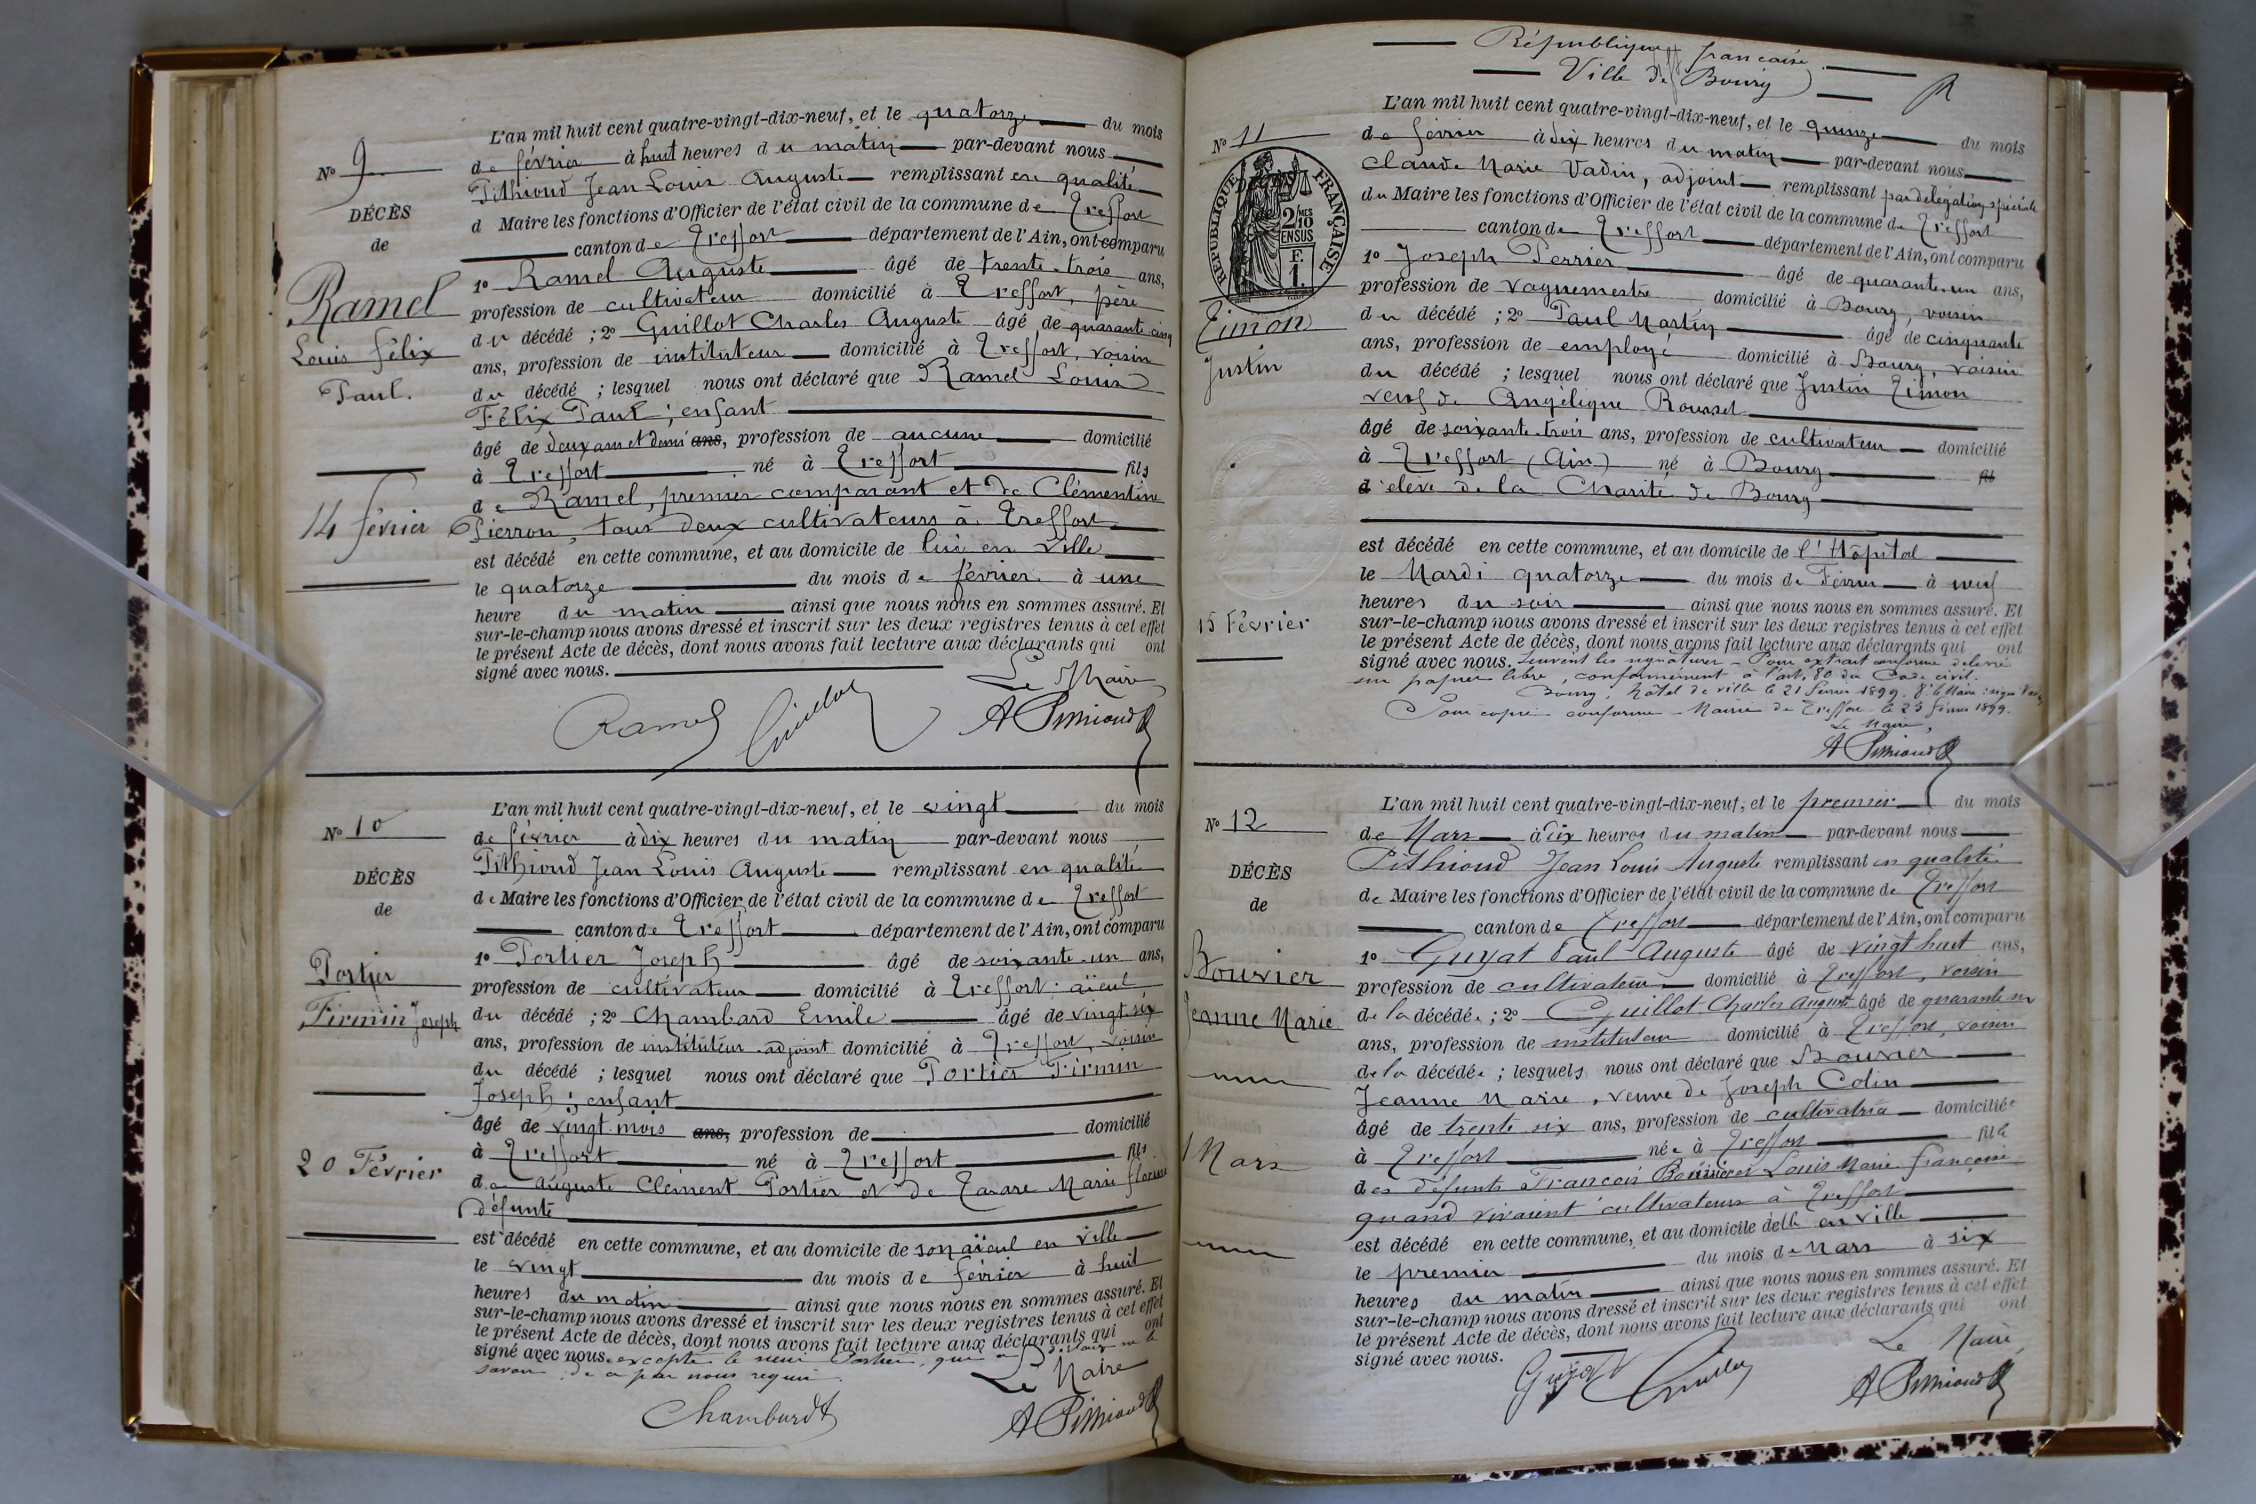 N° 9
DÉCÈS
de
Ramel
Louis Félix
Paul.
14 février
L'an mil huit cent quatre-vingt-dix-neuf, et le quatorze du mois
de février à huit heures du matin par-devant nous
Pithioud Jean Louis Auguste remplissant en qualité
d Maire les fonctions d'Officier de l'état civil de la commune de Treffort
canton de Treffort département de l'Ain, ont comparu
1° Ramel Auguste âgé de trente-trois ans,
profession de cultivateur domicilié à Treffort, père
du décédé ; 2° Guillot Charles Auguste âgé de quarante-cinq
ans, profession de instituteur domicilié à Treffort, voisin
du décédé ; lesquel nous ont déclaré que Ramel Louis
Félix Paul ; enfant
âgé de deux ans et demi ans, profession de aucune domicilié
à Treffort né à Treffort fils
de Ramel, premier comparant et de Clémentine
Pierron, tous deux cultivateurs à Treffort
est décédé en cette commune, et au domicile de lui en ville
le quatorze du mois de février à une
heure du matin ainsi que nous nous en sommes assuré. Et
sur-le-champ nous avons dressé et inscrit sur les deux registres tenus à cet effet
le présent Acte de décès, dont nous avons fait lecture aux déclarants qui ont
signé avec nous.
Le Maire
Ramel Guillot A Pithioud
N° 10
DÉCÈS
de
Portier
Firmin Joseph
20 Février
L'an mil huit cent quatre-vingt-dix-neuf, et le vingt du mois
de février à dix heures du matin par-devant nous
Pithioud Jean Louis Auguste remplissant en qualité
de Maire les fonctions d'Officier de l'état civil de la commune de Treffort
canton de Treffort département de l'Ain, ont comparu
1° Portier Joseph âgé de soixante-un ans,
profession de cultivateur domicilié à Treffort : aïeul
du décédé ; 2° Chambard Emile âgé de vingt-six
ans, profession de instituteur-adjoint domicilié à Treffort, voisin
du décédé ; lesquel nous ont déclaré que Portier Firmin
Joseph ; enfant
âgé de vingt mois ans, profession de domicilié
à Treffort né à Treffort fils
de Auguste Clément Portier et de Tarare Marie
défunte
est décédé en cette commune, et au domicile de son aïeul en ville
le vingt du mois de février à huit
heures du matin ainsi que nous nous en sommes assuré. Et
sur-le-champ nous avons dressé et inscrit sur les deux registres tenus à cet effet
le présent Acte de décès, dont nous avons fait lecture aux déclarants qui ont
signé avec nous. excepté le sieur Portier, qui a déclaré ne le
savoir, de ce par nous requis.
Le Maire
Chambard A Pithioud
République française
Ville de Bourg
N° 11
RÉPUBLIQUE FRANÇAISE
2/10
EN SUS
F.
1.
Timon
Justin
15 Février
L'an mil huit cent quatre-vingt-dix-neuf, et le quinze du mois
de février à dix heures du matin par-devant nous
Claude Marie Vadin, adjoint remplissant par délégation spéciale
du Maire les fonctions d'Officier de l'état civil de la commune de Treffort
canton de Treffort département de l'Ain, ont comparu
1° Joseph Perrier âgé de quarante-un ans,
profession de vaguemestre domicilié à Bourg, voisin
du décédé ; 2° Paul Martin âgé de cinquante
ans, profession de employé domicilié à Bourg, voisin
du décédé ; lesquel nous ont déclaré que Justin Timon
veuf de Angélique Rousset
âgé de soixante-trois ans, profession de cultivateur domicilié
à Treffort (Ain) né à Bourg fils
d'élève de la Charité de Bourg
est décédé en cette commune, et au domicile de l'Hôpital
le Mardi quatorze du mois de Février à neuf
heures du soir ainsi que nous nous en sommes assuré. Et
sur-le-champ nous avons dressé et inscrit sur les deux registres tenus à cet effet
le présent Acte de décès, dont nous avons fait lecture aux déclarants qui ont
signé avec nous. Suivent les signatures - Pour extrait conforme délivré
sur papier libre, conformément à l'art. 80 du Code civil.
Bourg, hôtel de ville le 21 février 1899. Le Maire : signé
Pour copie conforme - Mairie de Treffort le 23 février 1899.
Le Maire,
A Pithioud
N° 12
DÉCÈS
de
Bouvier
Jeanne Marie
1 Mars
L'an mil huit cent quatre-vingt-dix-neuf, et le premier du mois
de Mars à dix heures du matin par-devant nous
Pithioud Jean Louis Auguste remplissant en qualité
de Maire les fonctions d'Officier de l'état civil de la commune de Treffort
canton de Treffort département de l'Ain, ont comparu
1° Guyat Paul Auguste âgé de vingt huit ans,
profession de cultivateur domicilié à Treffort, voisin
de la décédée ; 2° Guillot Charles Auguste âgé de quarante
ans, profession de instituteur domicilié à Treffort, voisin
de la décédée ; lesquels nous ont déclaré que Bouvier
Jeanne Marie, veuve de Joseph Colin
âgé de trente six ans, profession de cultivatrice domiciliée
à Treffort née à Treffort fille
des défunts François Bouvier Louis Marie Françoise
quand vivaient cultivateurs à Treffort
est décédé en cette commune, et au domicile d'elle en ville
le premier du mois de Mars à six
heures du matin ainsi que nous nous en sommes assuré. Et
sur-le-champ nous avons dressé et inscrit sur les deux registres tenus à cet effet
le présent Acte de décès, dont nous avons fait lecture aux déclarants qui ont
signé avec nous.
Le Maire
Guyat Guillot A Pithioud